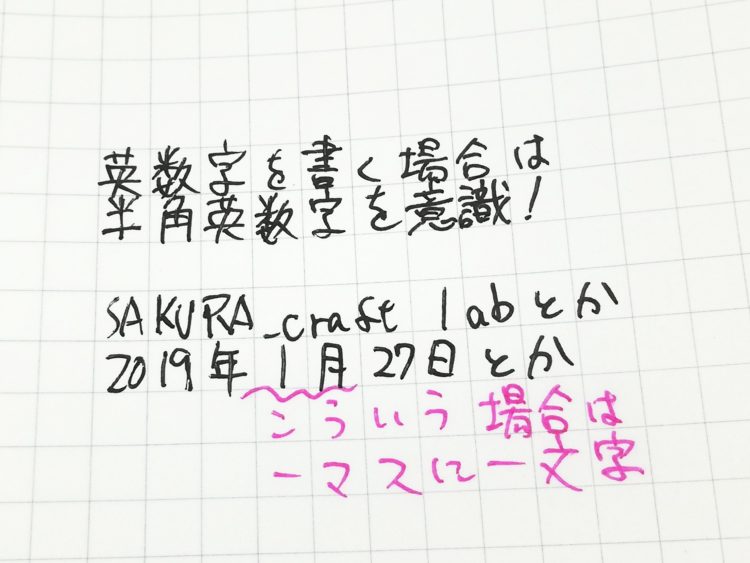 英数字を書く場合は
半角英数字を意識!
SAKURA_craft labとか
2019年1月27日とか
こういう場合は
一マスに一文字